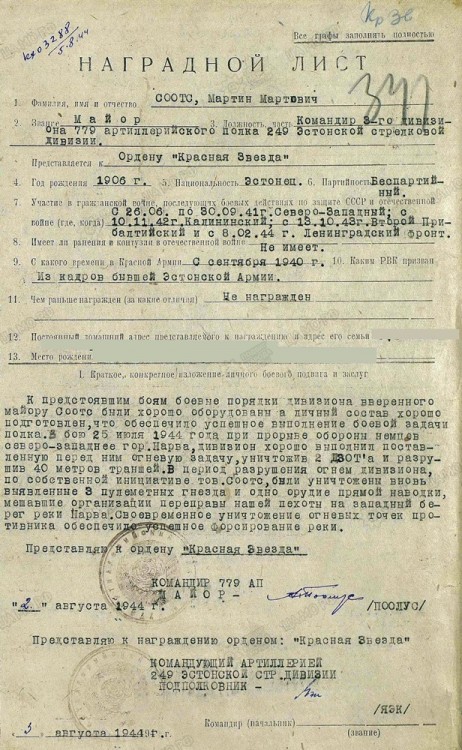 кхо3288
5.8.44
Кр Зв
Все графы заполнить полностью
НАГРАДНОЙ ЛИСТ
1. Фамилия, имя и отчество СООТС, Мартин Мартович
2. Звание Майор 3. Должность, часть Командир 3-го дивизи-
она 779 артиллерийского полка 249 Эстонской стрелковой
Дивизии.
Представляется к Ордену "Красная Звезда"
4. Год рождения 1906 г. 5. Национальность Эстонец. 6. Партийность Беспартий-
ный.
7. Участие в гражданской войне, последующих боевых действиях по защите СССР и отечественной
войне (где, когда) С 26.06. по 30.09.41г.Северо-Западный; с
10.11.42г.Калининский; с 13.10.43г.Второй При-
балтийский и с 8.02.44 г. Ленинградский фронт.
8. Имеет ли ранения и контузии в отечественной войне Не имеет.
9. С какого времени в Красной Армии С сентября 1940 г. 10. Каким РВК призван
Из кадров бывшей Эстонской Армии.
11. Чем ранее награжден (за какие отличия) Не награжден
12. Постоянный домашний адрес представляемого к награждению и адрес его семьи
13. Место рождени
I. Краткое, конкретное изложение личного боевого подвига и заслуг
К предстоявшим боям боевые порядки дивизиона вверенного
майору Соотс были хорошо оборудованы а личный состав хорошо
подготовлен,что обеспечило успешное выполнение боевой задачи
полка.В бою 25 июля 1944 года при прорыве обороны немцев
северо-западнее гор.Нарва,дивизион хорошо выполнил постав-
ленную перед ним огневую задачу,уничтожив 2 ДЗОТ'а и разру-
шив 40 метров траншей.В период разрушения огнем дивизиона,
по собственной инициативе тов.Соотс,были уничтожены вновь
выявленные 3 пулеметных гнезда и одно орудие прямой наводки,
мешавшие организации переправы нашей пехоты на западный бе-
рег реки Нарва.Своевременное уничтожение огневых точек про-
тивника обеспечило успешное форсирование реки.
Представляю к ордену "Красная Звезда"
КОМАНДИР 779 АП
МАЙОР -
"2" августа 1944 г. /ПООЛУС/
Представляю к награждению орденом: "Красная Звезда"
КОМАНДУЮЩИЙ АРТИЛЛЕРИЕЙ
249 ЭСТОНСКОЙ СТР.ДИВИЗИИ
ПОДПОЛКОВНИК -
/ЯЭК/
Командир (начальник)
3 августа 1944г. (звание)